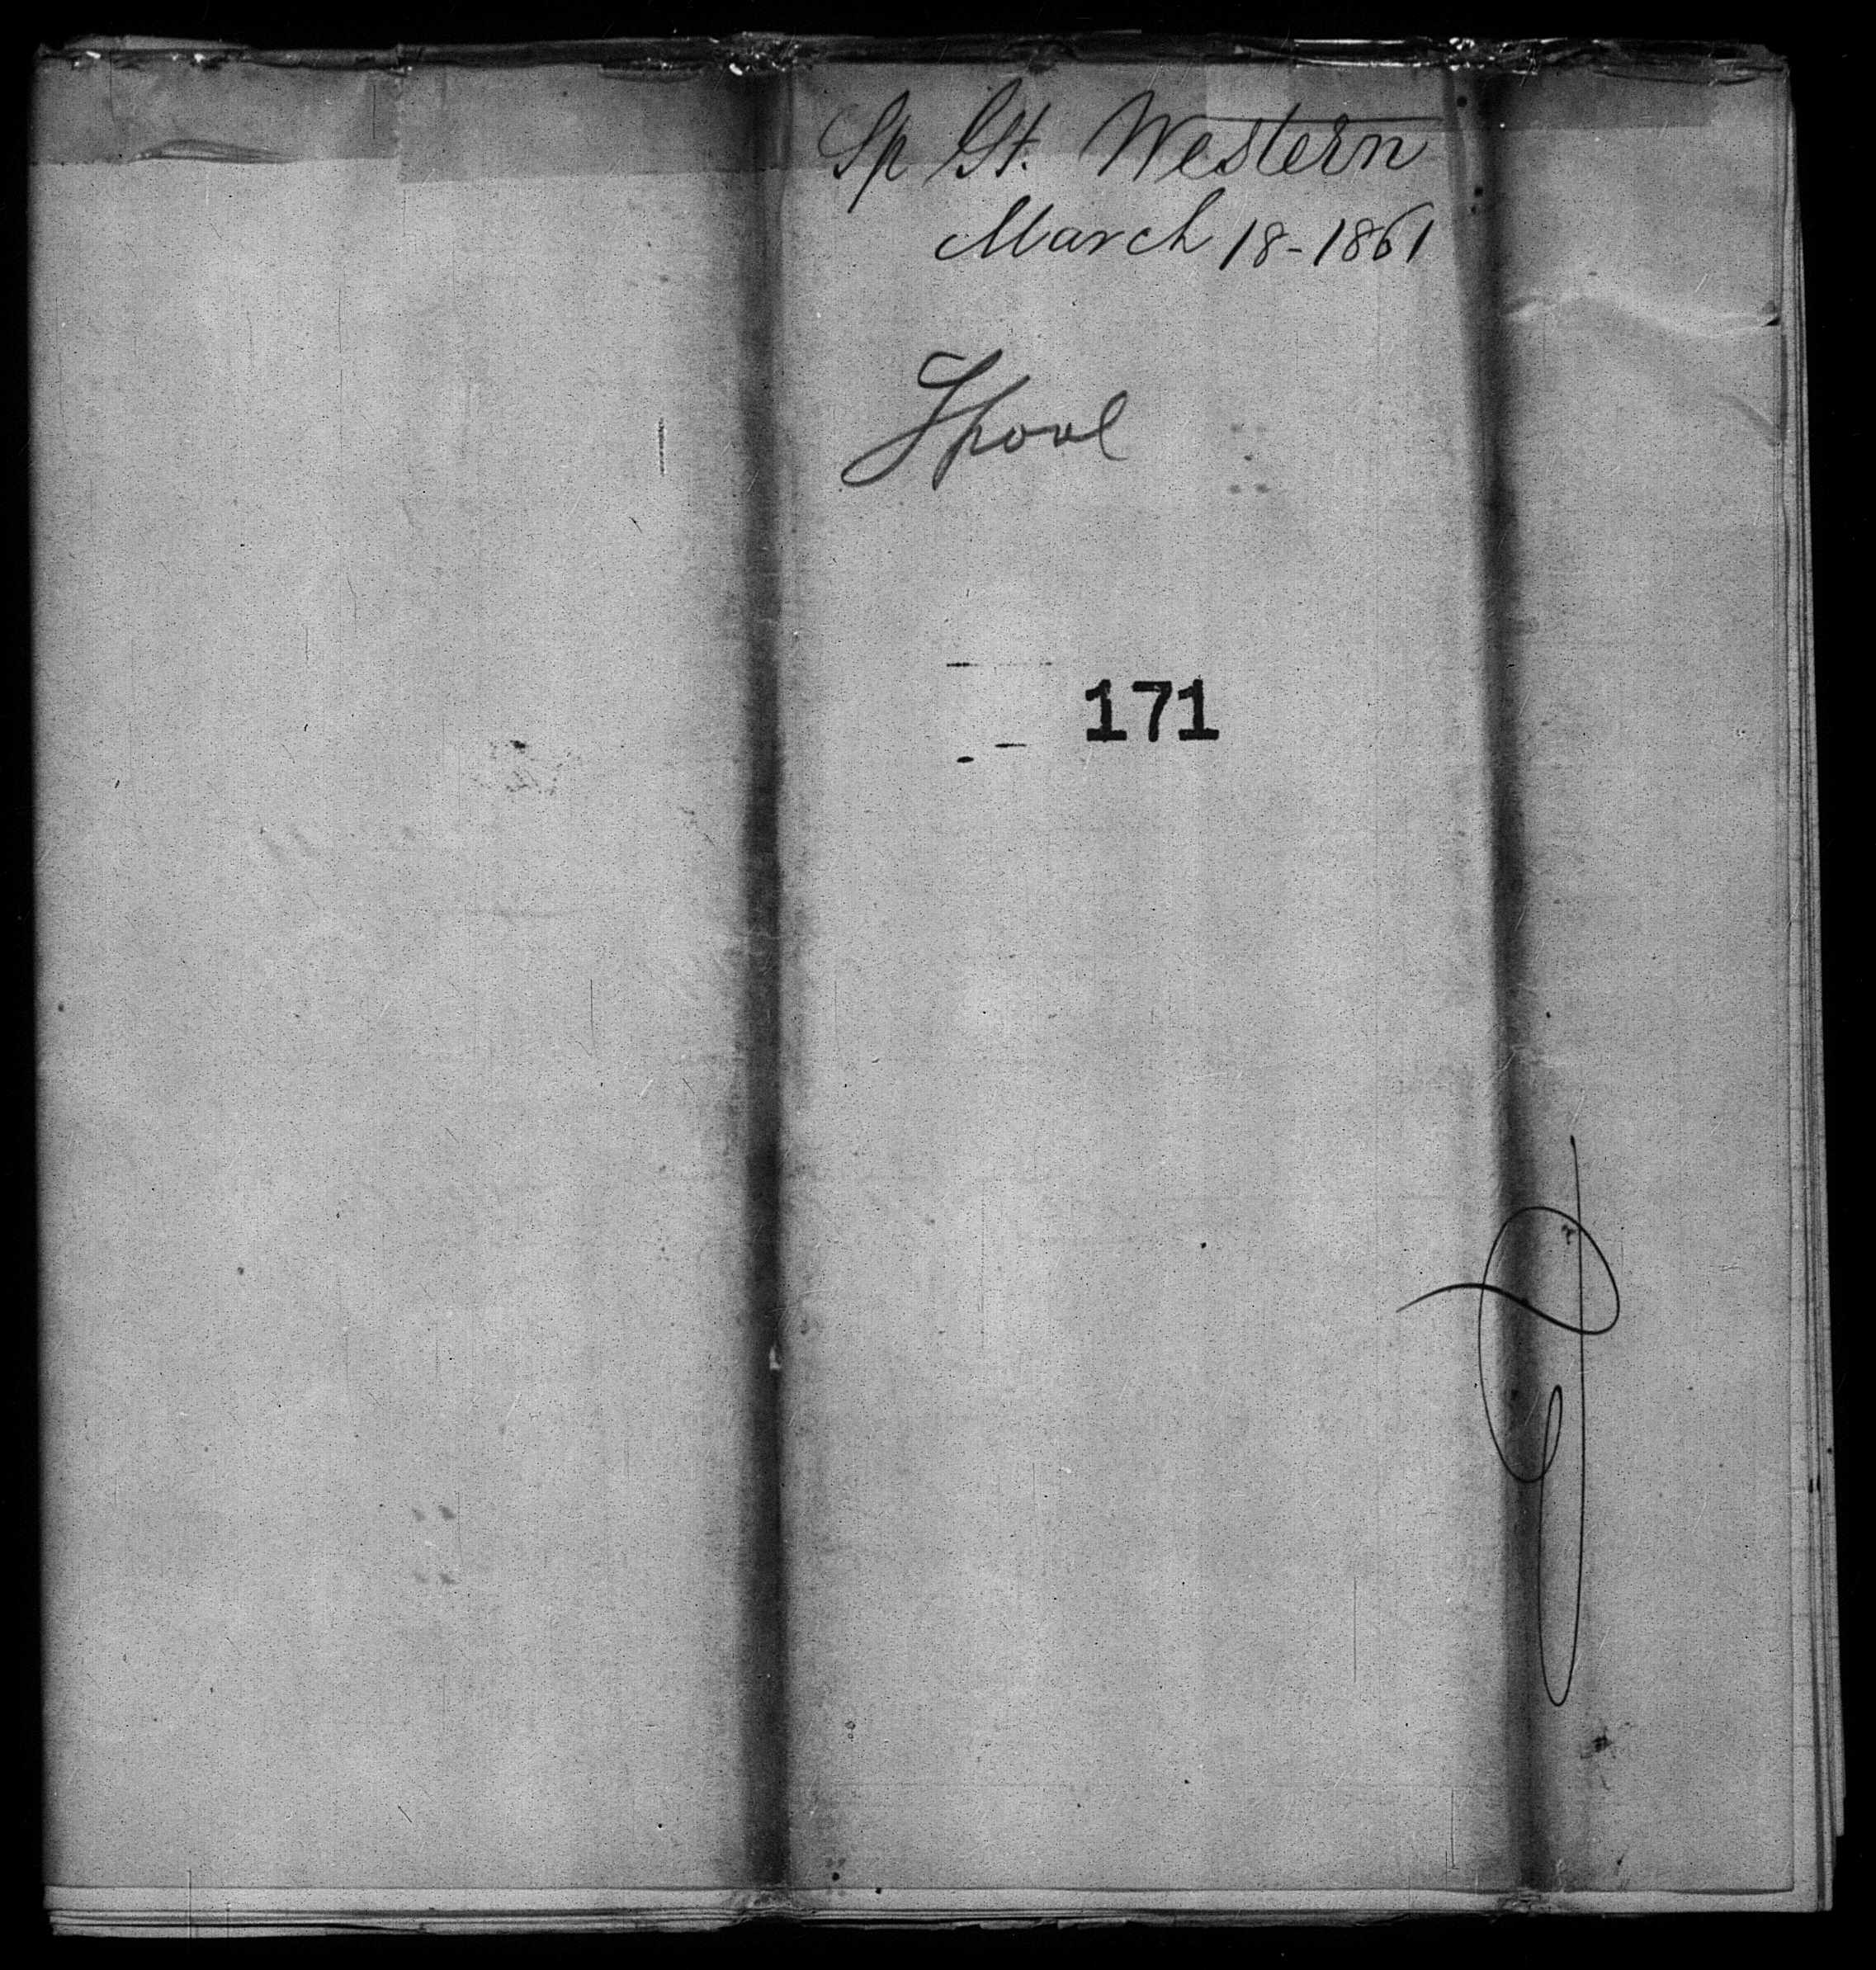 Sp Gt. Western
March 18-1861
Liverpool
171